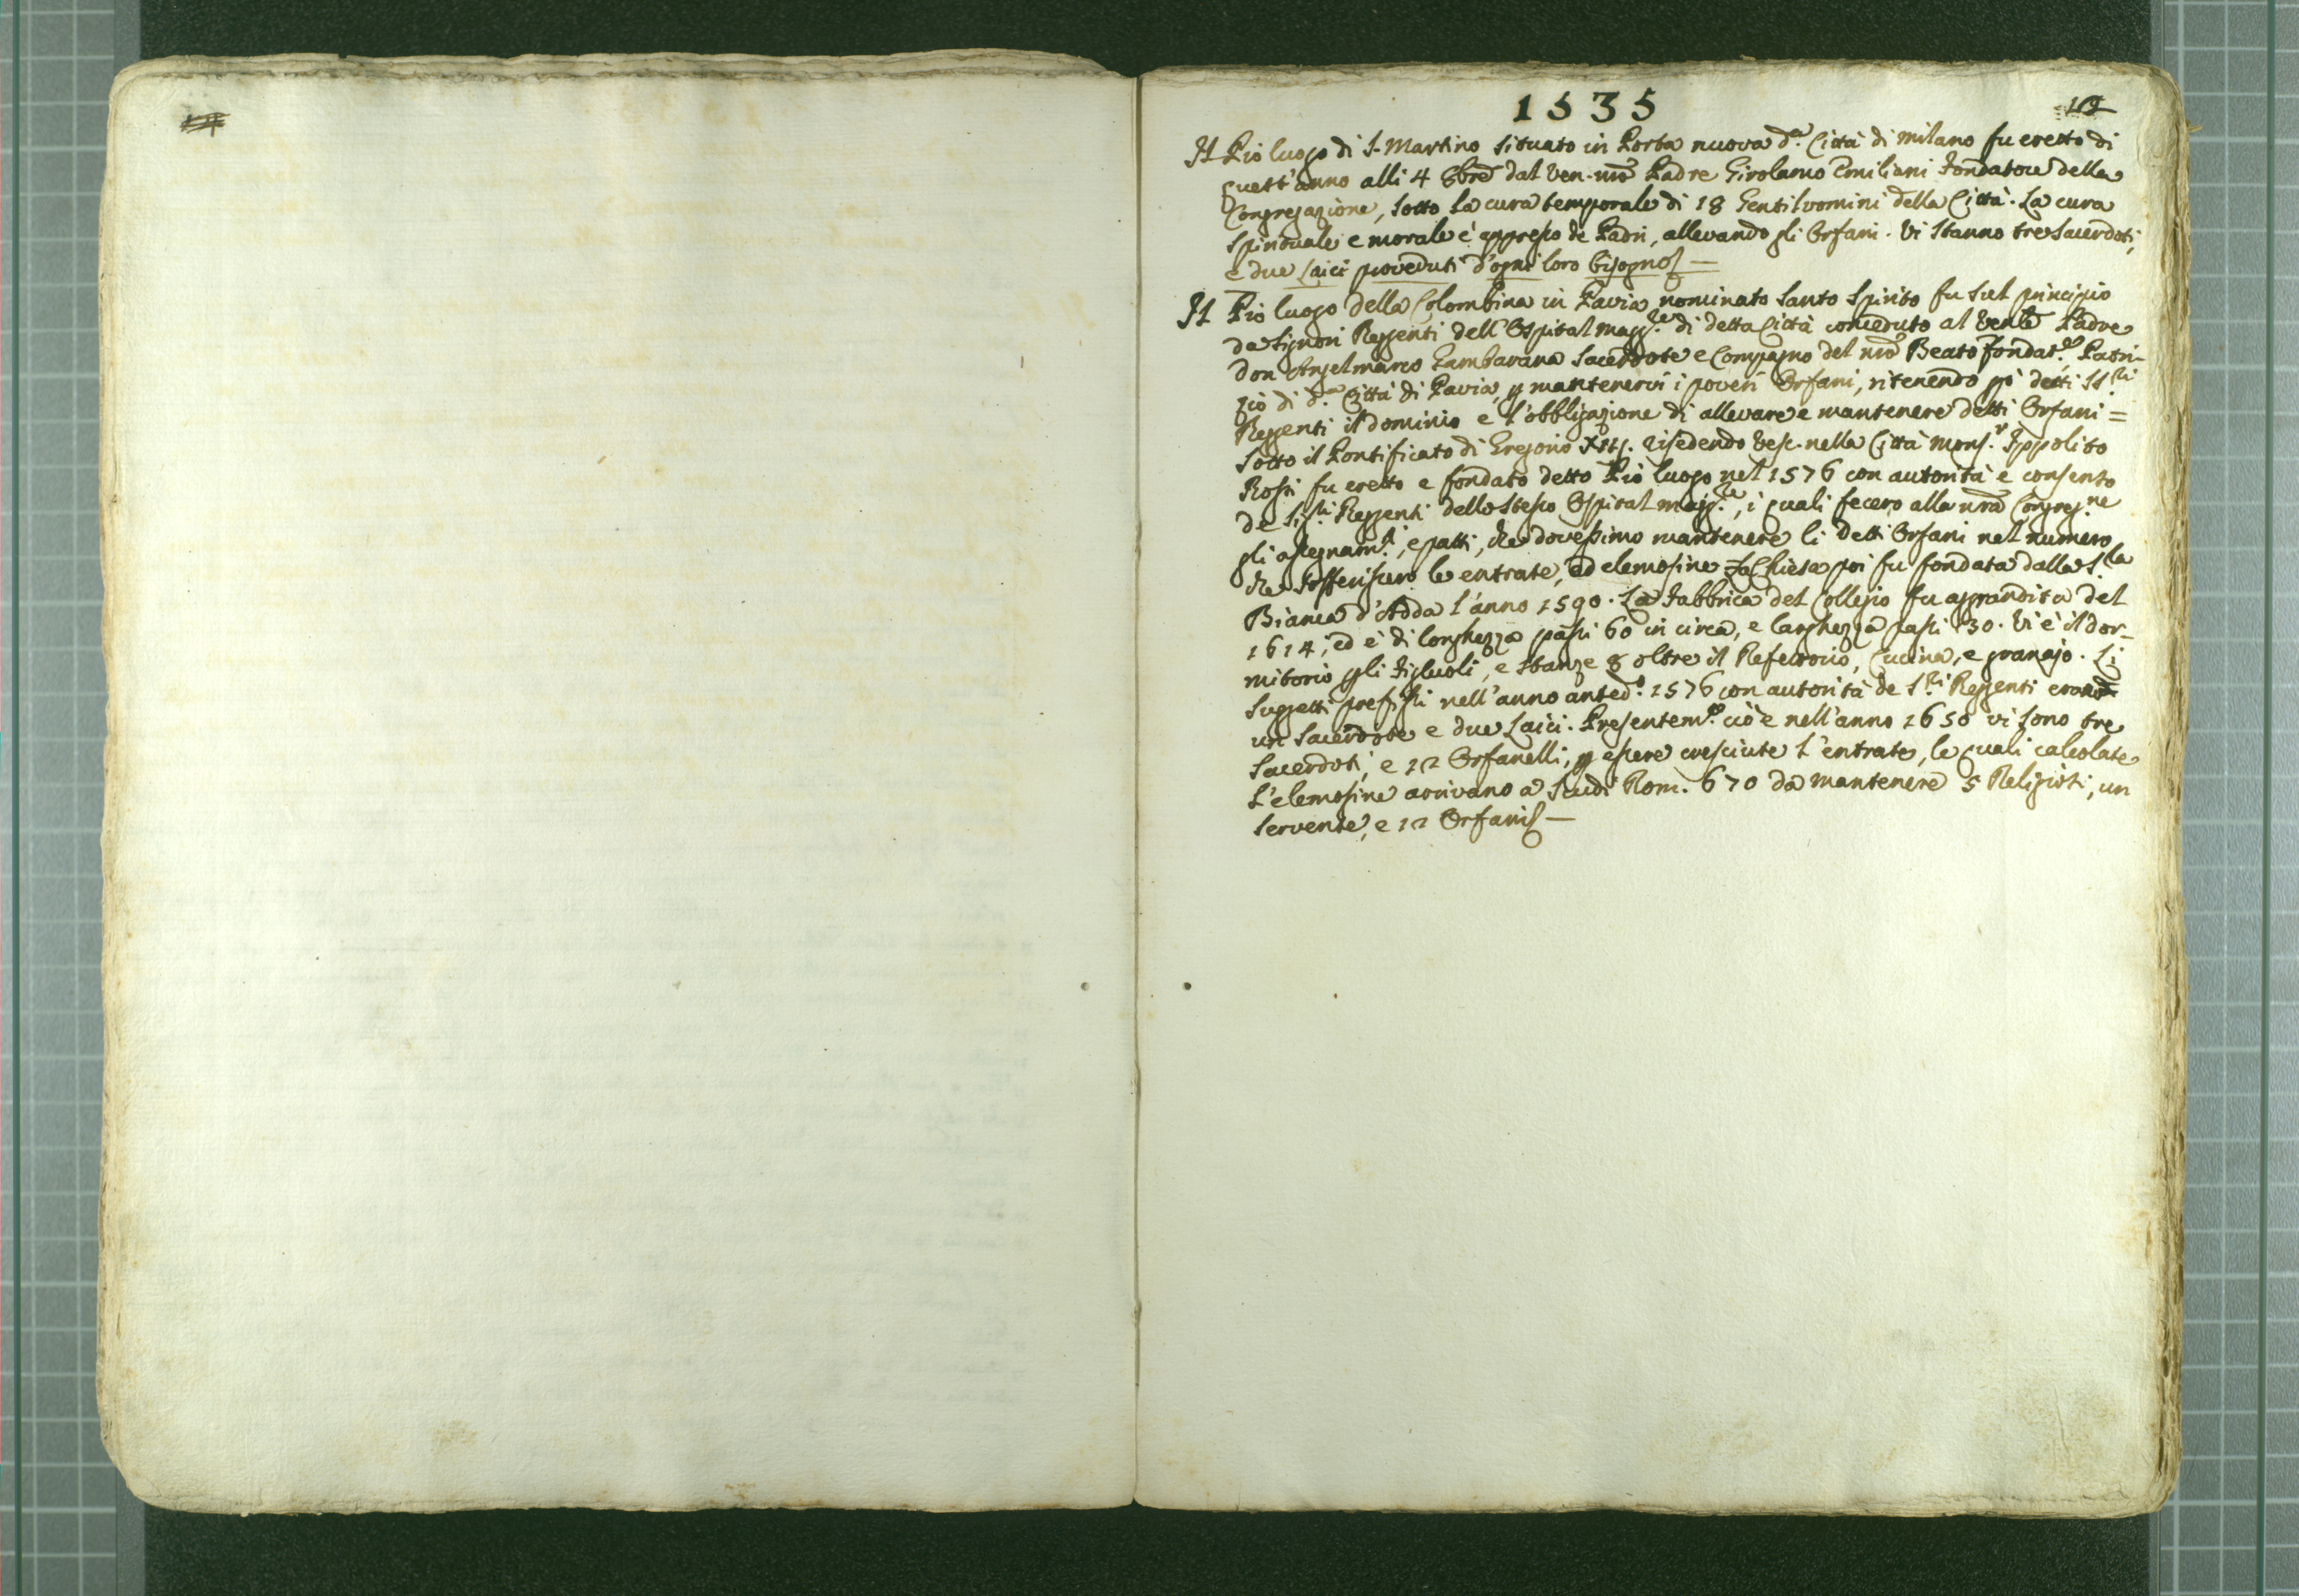 1535
Il Pio luogo di S. Martino situato in Porta nuova d.a Città di Milano fu eretto di
quest'anno alli 4 8bre dal Ven. nro Padre Girolamo Emiliani Fondatore della
Congregazione, sotto la cura temporale di 18 Gentiluomini della Città. La cura
spirituale e morale è appresso de Padri, allevando gli Orfani. Vi stanno tre Sacerdoti,
e due Laici proveduti d'ogni loro bisogno
Il Pio luogo della Colombina in Pavia nominato Santo Spirito fu sul principio
da Signori Reggenti dell'Ospital magg.re di detta Città conceduto al Venle Padre
Don Angelmarco Gambarana Sacerdote e Compagno del nro Beato fondat.re Patri-
zio di d.a Città di Pavia, p mantenervi i poveri Orfani, ritenendo pò detti SS.ri
Reggenti il dominio e l'obbligazione di allevare e mantenere detti Orfani =
Sotto il Pontificato di Gregorio XIII. risedendo Vesc. nella Città Mons.r Ippolito
Rossi fu eretto e fondato detto Pio luogo nel 1576 con autorità e consenso
de Sig.ri Reggenti dello stesso Ospital magg.re, i quali fecero alla nra Congreg.ne
gli assegnam.ti, e patti, che dovessimo mantenere li detti Orfani nel numero
che sofferissero le entrate, ed elemosine La Chiesa poi fu fondata dalla S.ra
Bianca d'Adda l'anno 1590. La Fabbrica del Collegio fu aggrandita del
1614, ed è di longhezza passi 60 in circa, e larghezza passi 30. Vi è il dor-
mitorio p gli Figliuoli, e stanze 8 oltre il Refettorio, Cucina, e granajo. Li
Suggetti prefissi nell'anno anted.o 1576 con autorità de S.ri Reggenti erano
un Sacerdote e due Laici. Presentem.te cioè nell'anno 1650 vi sono tre
Sacerdoti, e 12 Orfanelli, p essere cresciute l'entrate, le quali calcolate
l'elemosine arrivano a Scudi Rom. 670 da mantenere 5 Religiosi, un
servente, e 12 Orfani